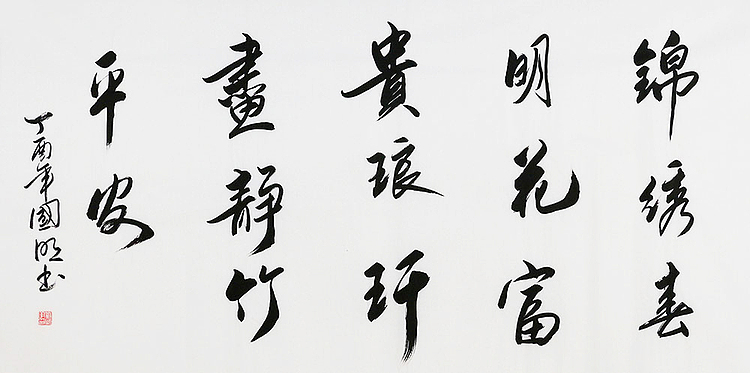 錦绣春
明花富
貴琅玕
畫静竹
平安
丁酉年國明书